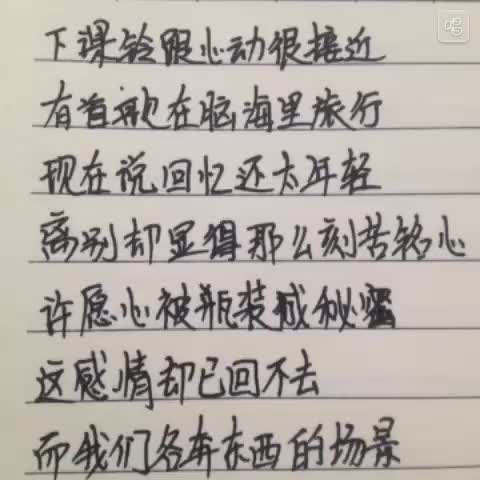 下课铃跟心动很接近
有首歌在脑海里旅行
现在说回忆还太年轻
离别却显得那么刻苦铭心
许愿心被瓶装成秘蜜
这感情却已回不去
而我们各奔东西的场景
唱